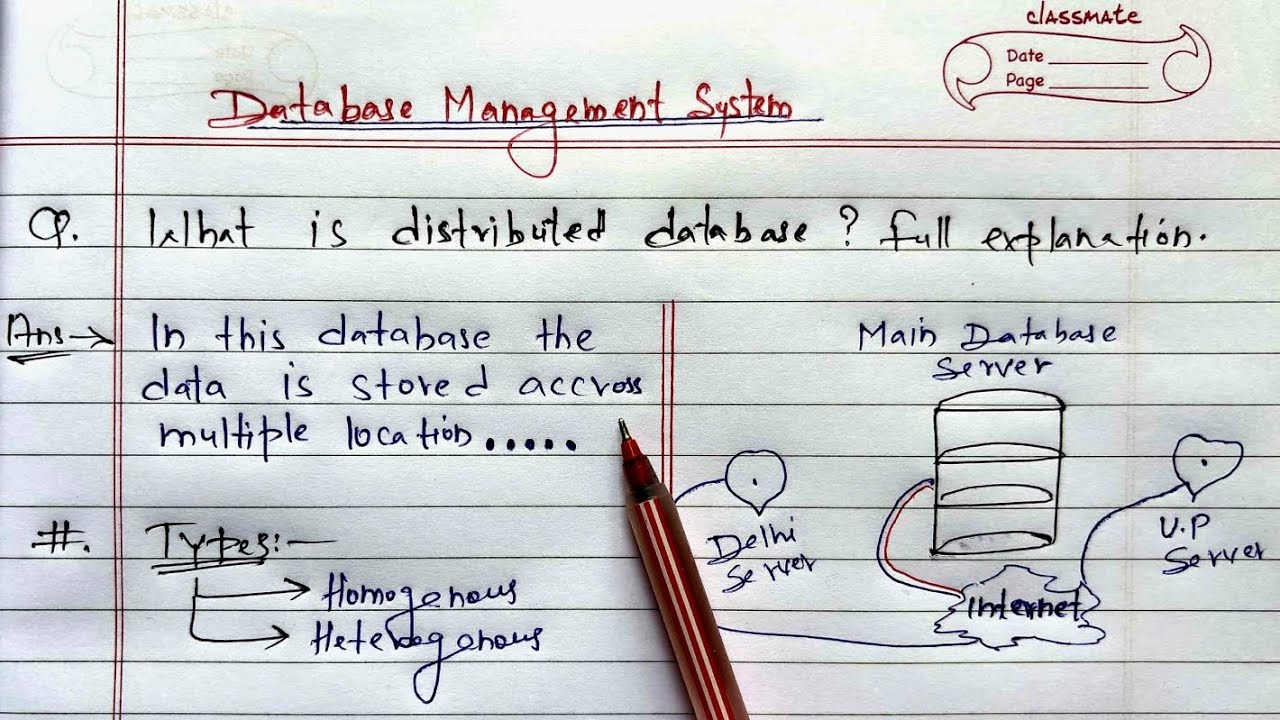 classmate
Date
Page
Database Management System
Q. What is distributed database ? full explanation.
Ans→ In this database the
data is stored accross
multiple location.....
#. Types:—
Homogenous
Heterogenous
Main Database
Server
Delhi
Server
U.P
Server
Internet